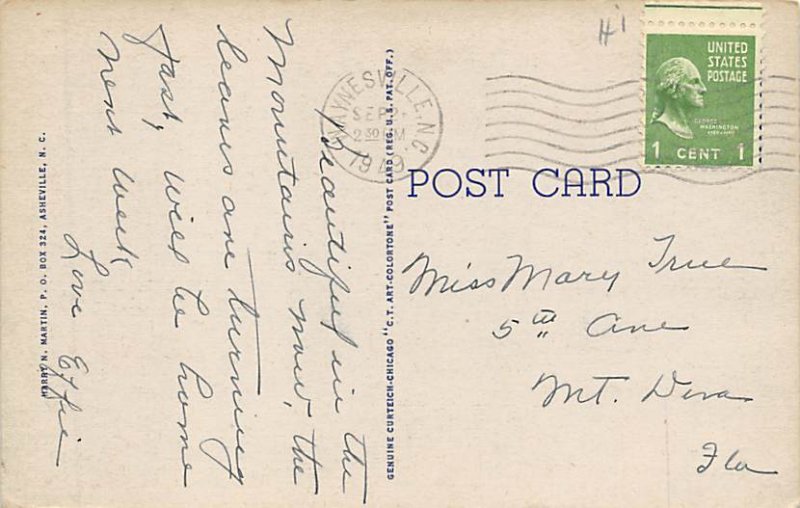 Beautiful in the
Mountains now, the
leaves are turning
fast, will be home
next week
Love Effie
HARRY N. MARTIN, P. O. BOX 324, ASHEVILLE, N. C.
GENUINE CURTEICH-CHICAGO "C.T. ART-COLORTONE" POST CARD (REG. U. S. PAT. OFF.)
WAYNESVILLE, N.C.
SEP
2 30 PM
1949
UNITED
STATES
POSTAGE
GEORGE
WASHINGTON
1 CENT 1
POST CARD
Miss Mary True
5th Ave
Mt. Dora
Fla